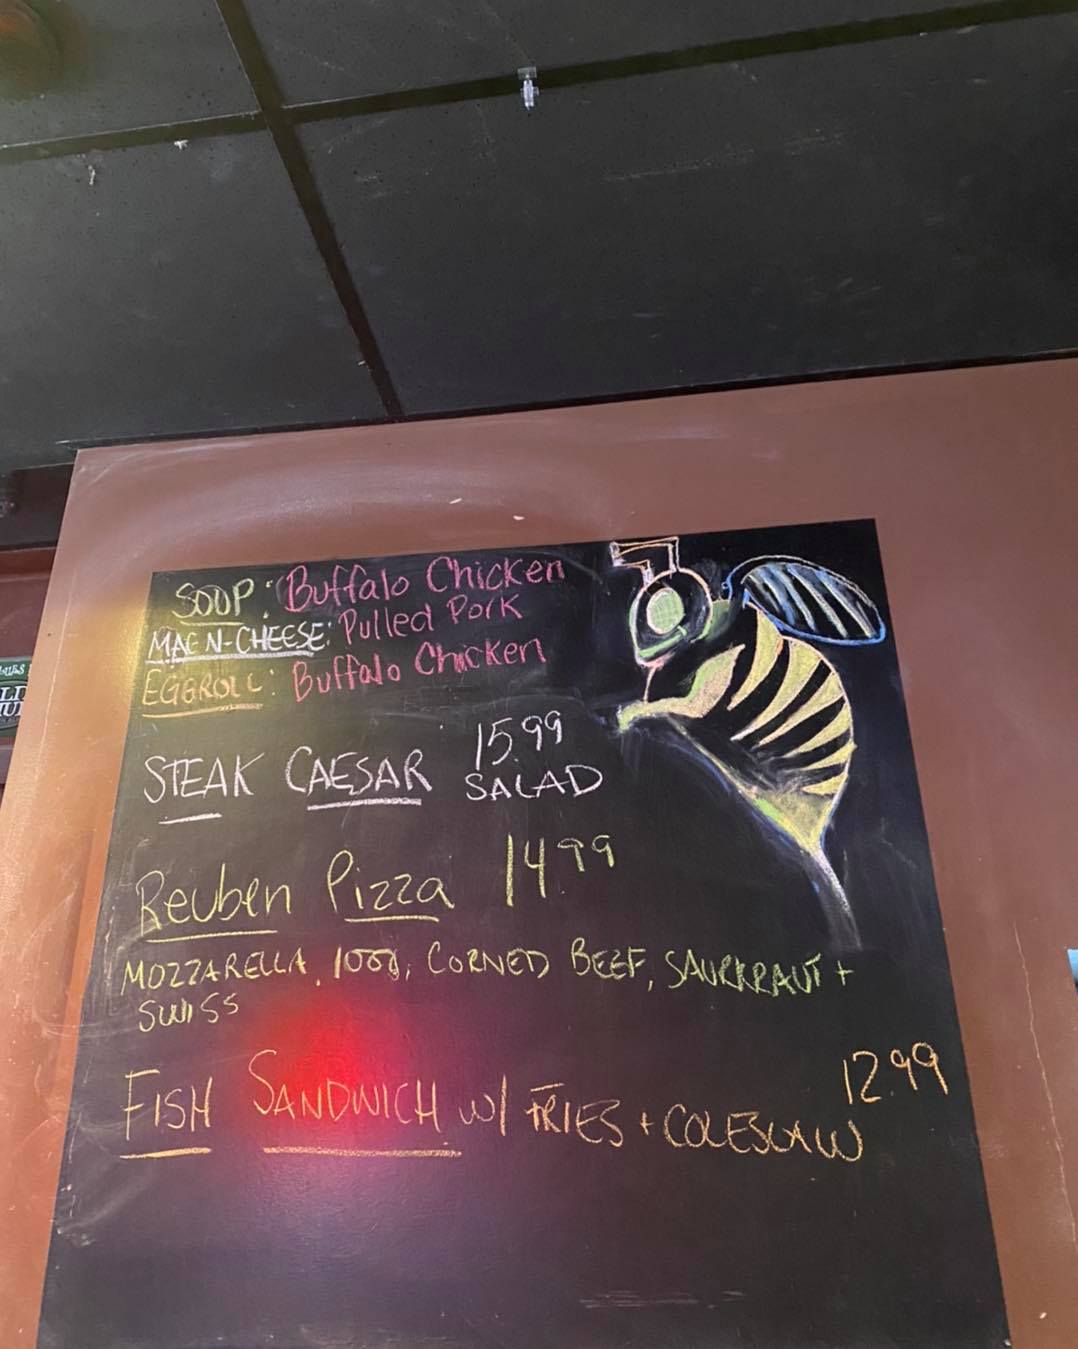 SOUP: Buffalo Chicken
MAC N-CHEESE: Pulled Pork
EGGROLL: Buffalo Chicken
STEAK CAESAR SALAD 15.99
Reuben Pizza 14.99
MOZZARELLA, 1000, CORNED BEEF, SAURKRAUT +
SWISS
FISH SANDWICH W/ FRIES + COLESLAW 12.99